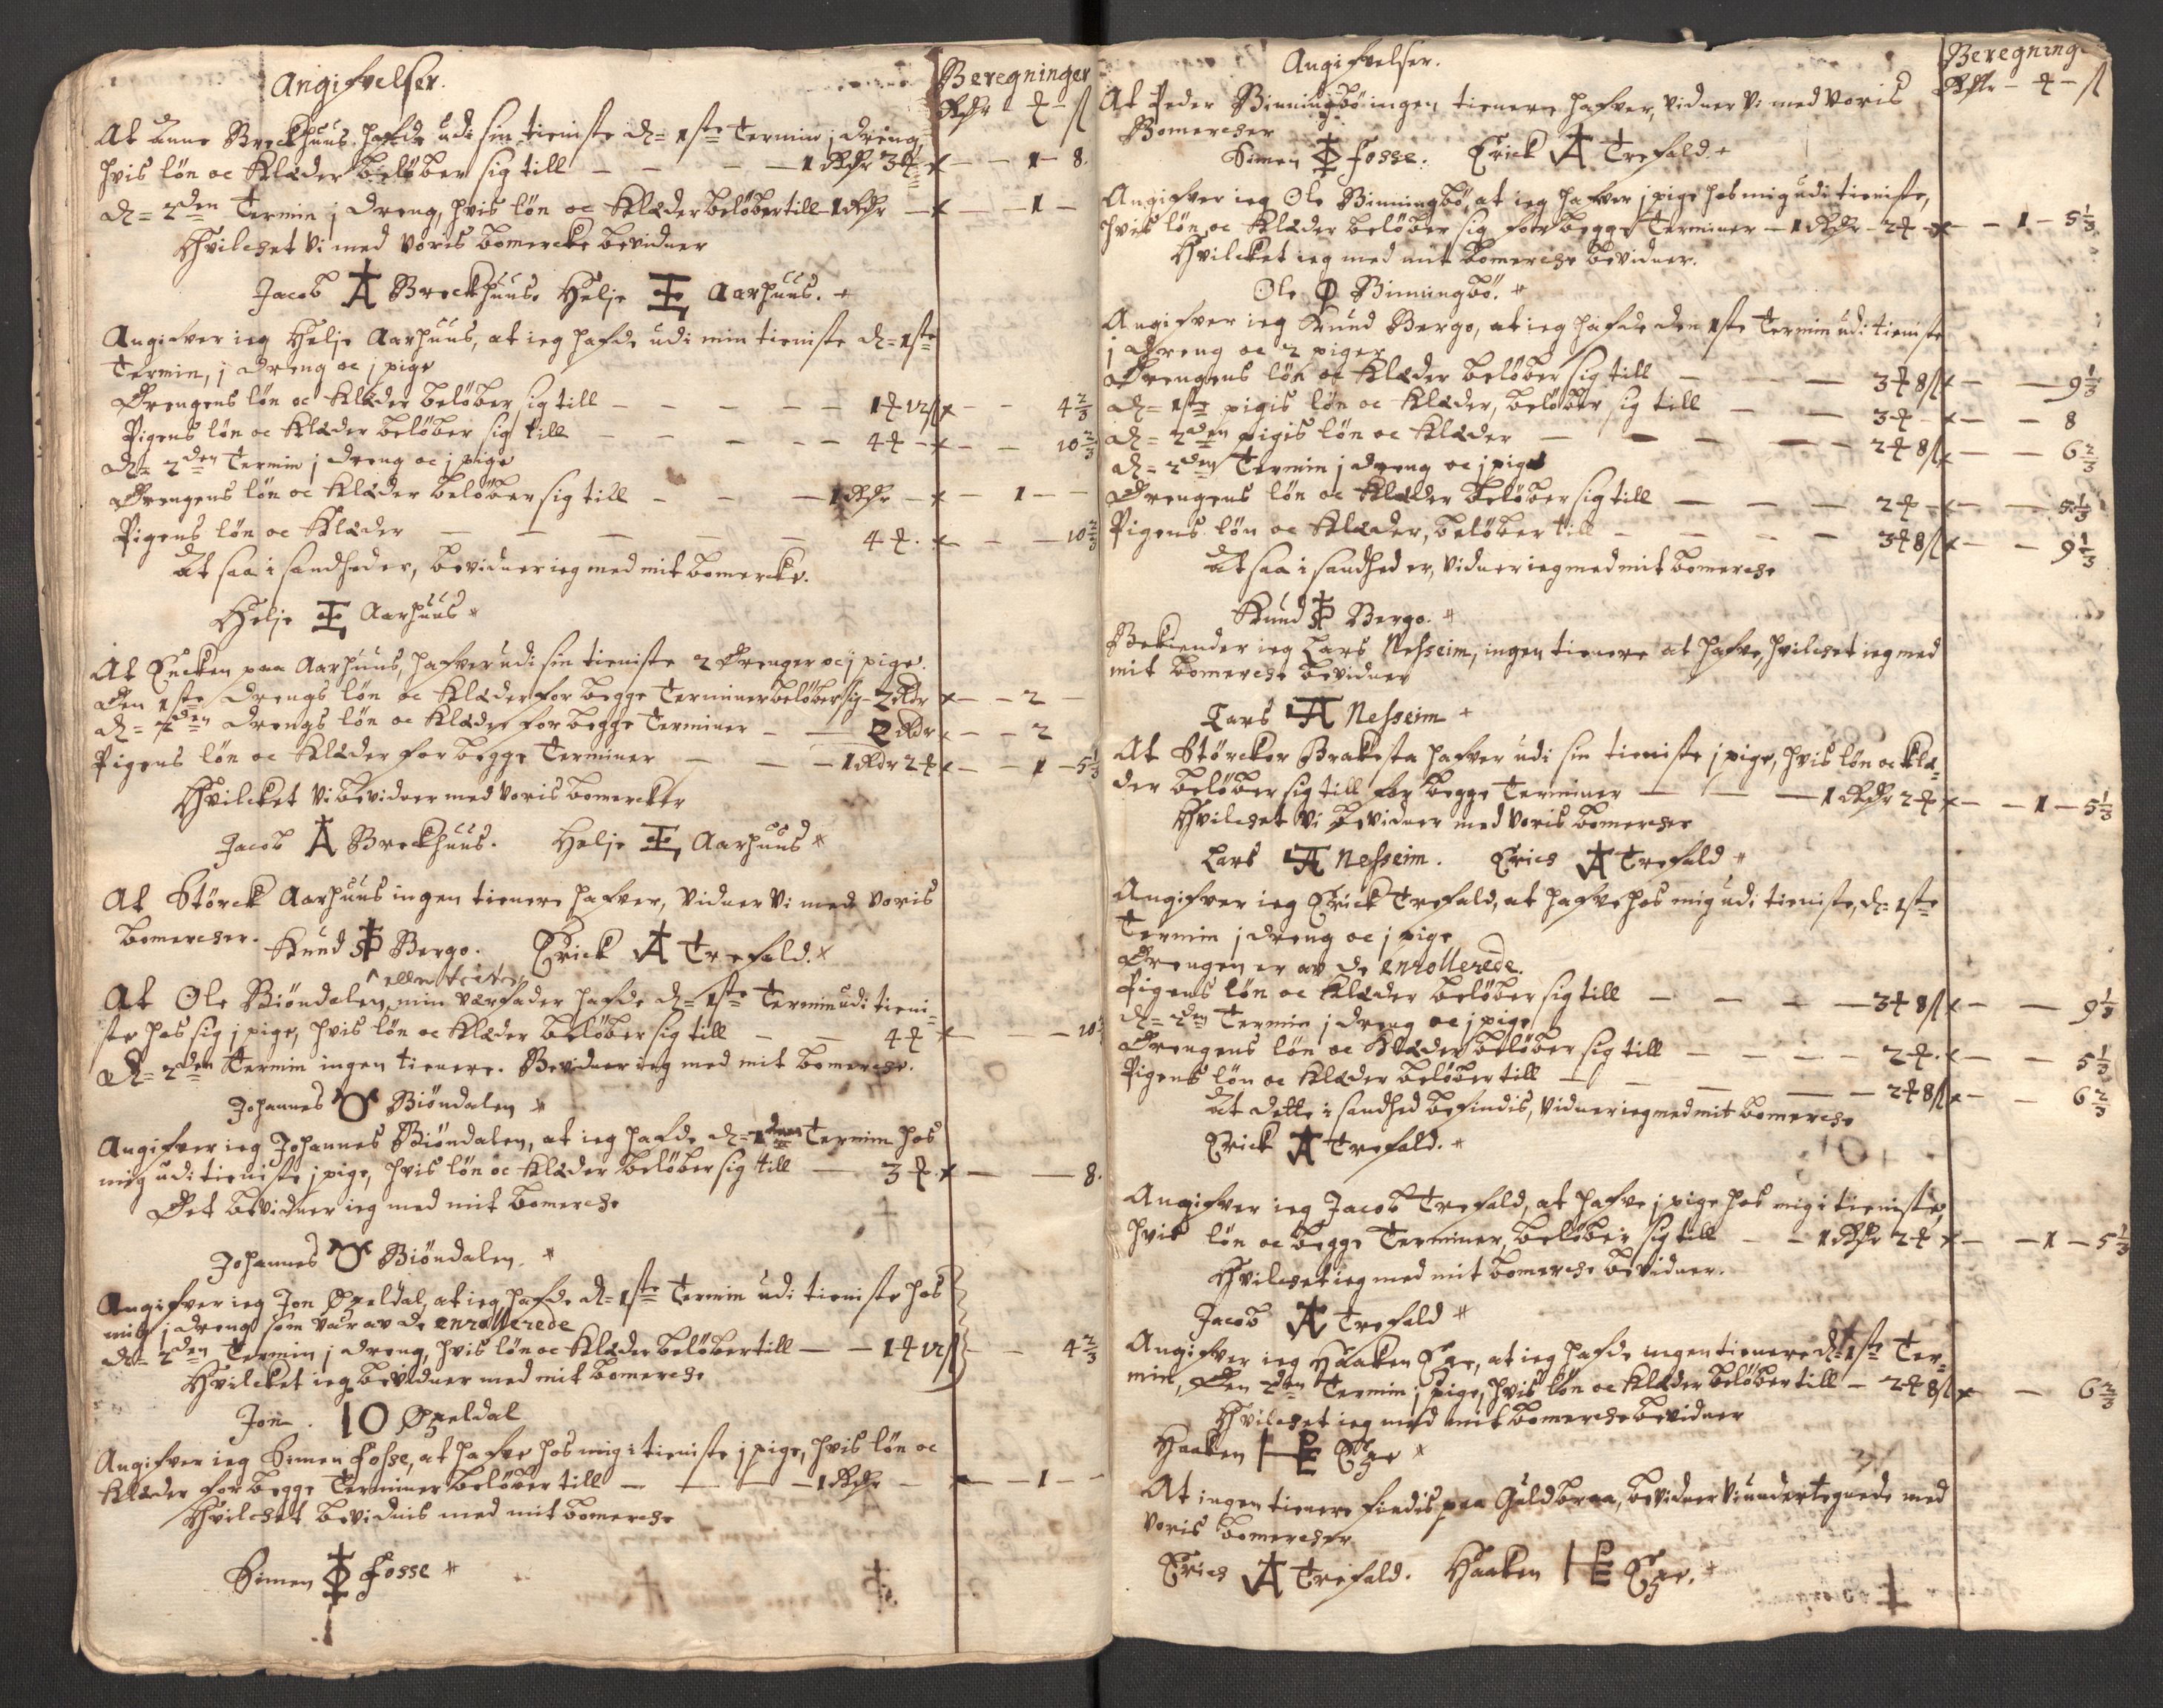 Angifvelser.
Beregninger
Rdr - ß
At Anne Breckhuus hafde udi sin tieniste d= 1ste Termin j dreng,
hvis løn oc Klæder beløber sig till — — — 1 Rdr 3 — — 1 - 8.
d= 2den Termin j dreng, hvis løn oc Klæder beløber till - 1 Rdr — — 1 -
Hvilcket vi med voris bomercke bevidner
Jacob Breckhuus. Helje Aarhuus.
Angifver ieg Helje Aarhuus, at ieg hafde udi min tieniste d= 1ste
Termin, j dreng oc j pige
Drengens løn oc Klæder beløber sig till — — — 1 12 ß — — 4 2/3
Pigens løn oc Klæder beløber sig till — — — 4 — — 10 2/3
d= 2den Termin j dreng oc j pige
Drengens løn oc Klæder beløber sig till — — — 1 Rdr — — 1 — -
Pigens løn oc Klæder — — — 4 . — — 10 2/3
At saa i sandhed er, bevidner ieg med mit bomercke.
Helje Aarhuus
At Encken paa Aarhuus, hafver udi sin tieniste 2 drenger oc j pige.
Den 1ste drengs løn oc Klæder for begge Terminer beløber sig - 2 Rdr — — 2 -
d= 2den drengs løn oc Klæder for begge Terminer — — 2 Rdr — — 2
Pigens løn oc Klæder for begge Terminer — — — 1 Rdr 2 — — 1 - 5 1/3
Hvilcket vi bevidner med voris bomercker
Jacob Breckhuus. Helje Aarhuus
At Størck Aarhuus ingen tienere hafver, vidner vi med voris
bomercker. Knud Bergo. Erick Trefald.
At Ole Biöndalen, min værfader hafde d= 1ste Termin udi tieni-
ste hos sig j pige, hvis løn oc Klæder beløber sig till — — 4 — — 10
d= 2den Termin ingen tienere. Bevidner ieg med mit bomercke.
Johannes Biöndalen
Angifver ieg Johannes Biöndalen, at ieg hafde d= 1 Termin hos
mig udi tieniste j pige, hvis løn oc Klæder beløber sig till — 3 . — — 8.
Det bevidner ieg med mit bomercke
Johannes Biöndalen.
Angifver ieg Jon Øxeldal, at ieg hafde d= 1ste Termin udi tieniste hos
mig j dreng som var av de enrollerede
d= 2den Termin j dreng, hvis løn oc Klæder beløber till — — 1 12 ß — — 4 2/3
Hvilcket ieg bevidner med mit bomercke
Jon. IO Øxeldal
Angifver ieg Simen Fosse, at hafve hos mig i tieniste j pige, hvis løn oc
Klæder for begge Terminer beløber till — — — 1 Rdr — — 1 — -
Hvilcket bevidnis med mit bomercke
Simen Fosse
Angifvelser.
Beregning
Rdr - - ß
At Peder Binningbö ingen tienere hafver, vidner vi med voris
Bomercker
Simen Fosse. Erick Trefald.
Angifver ieg Ole Binningbö, at ieg hafver j pige hos mig udi tieniste,
hvis løn oc Klæder beløber sig for begge Terminer — 1 Rdr - 2 — — 1 - 5 1/3
Hvilcket ieg med mit bomercke bevidner.
Ole Binningbö.
Angifver ieg Knud Bergo, at ieg hafde den 1ste Termin udi tieniste
j dreng oc 2 piger
Drengens løn oc Klæder beløber sig till — — — 3 8 ß — — 9 1/3
d= 1ste pigis løn oc Klæder, beløber sig till — — 3 - — — 8
d= 2den pigis løn oc Klæder — — — — 2 8 ß — — 6 2/3
d= 2den Termin j dreng oc j pige
Drengens løn oc Klæder beløber sig till — — — 2 — — 5 1/3
Pigens løn oc Klæder, beløber till — — — 3 8 ß — — 9 1/3
At saa i sandhed er, vidner ieg med mit bomercke
Knud Bergo.
Bekiender ieg Lars Nesseim, ingen tienere at hafve, hvilcket ieg med
mit bomercke bevidner
Lars Nesseim
At Størcker Brakesta hafver udi sin tieniste j pige, hvis løn oc klæ-
der beløber sig till for begge Terminer — — — 1 Rdr 2 — — 1 - 5 1/3
Hvilcket vi bevidner med voris bomercker
Lars Nesseim. Erick Trefald
Angifver ieg Erick Trefald, at hafve hos mig udi tieniste, d= 1ste
Termin j dreng oc j pige
Drengen er av de enrollerede.
Pigens løn oc Klæder beløber sig till — — — 3 8 ß — — 9 1/3
d= 2den Termin j dreng oc j pige
Drengens løn oc Klæder beløber sig till — — — 2 . — — 5 1/3
Pigens løn oc Klæder beløber till — — — 2 8 ß — — 6 2/3
At dette i sandhed befindis, vidner ieg med mit bomercke
Erick Trefald.
Angifver ieg Jacob Trefald, at hafve j pige hos mig i tieniste,
hvis løn oc begge Terminer, beløber sig till — — 1 Rdr 2 — — 1 - 5 1/3
Hvilcket ieg med mit bomercke bevidner.
Jacob Trefald
Angifver ieg Haaken Exe, at ieg hafde ingen tienere d= 1ste Ter-
min, Den 2den Termin j pige, hvis løn oc Klæder beløber till — 2 8 ß — 6 2/3
Hvilcket ieg med mit bomercke bevidner
Haaken Exe
At ingen tienere findis paa Guldbraa, bevidner vi undertegnede med
voris bomercker
Erick Trefald. Haaken Exe.